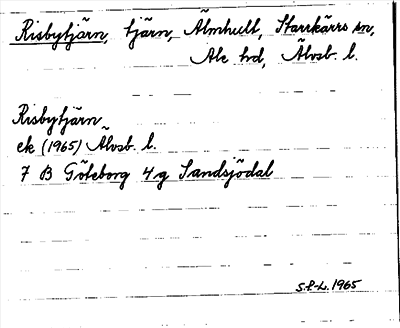 Risbytjärn, tjärn, Älmhult, Starrkärrs sn,
Ale hd, Älvsb. l.
Risbytjärn
ek (1965) Älvsb. l.
7 B Göteborg 4g Sandsjödal
S.P-L. 1965